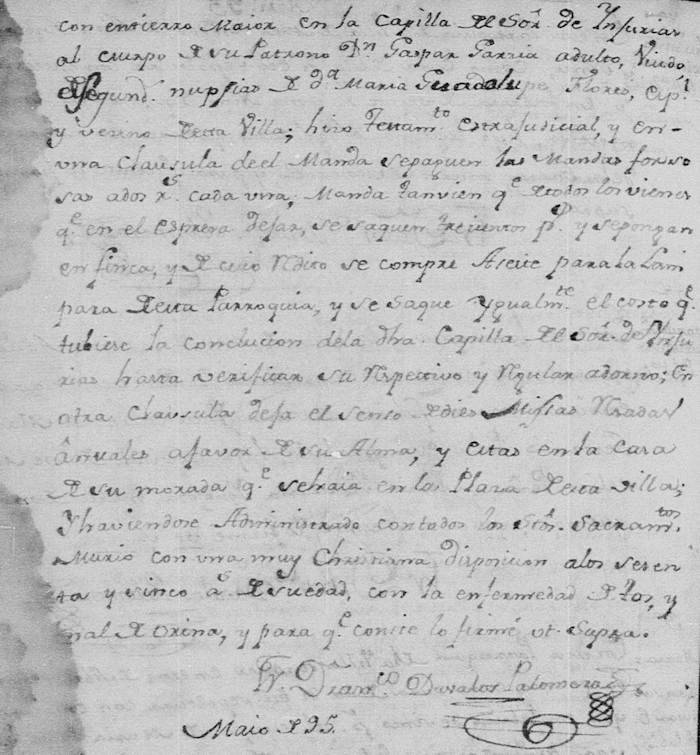 con entierro Maior en la Capilla del Sor. de Injurias
al cuerpo de su Patrono Dn. Gaspar Garzia adulto, Viudo
de Segund. nupsias de da. Maria Guadalupe Flores, esp.l
y vecino de esta Villa; hizo Testamto. extrajudicial, y en
una Clausula de el Manda se paguen las Mandas forso
sas a dos rs. cada una; Manda tanvien qe. de todos los vienes
qe. en el espresa dejar, se saquen trecientos ps. y se pongan
en finca, y de cuio redito se compre Aseite para la Lam
para de esta Parroquia, y se saque ygualmte. el costo qe.
tubiese la conclucion de la dha. Capilla del Sor. de Inju
rias hasta verificar su respectivo y regular adorno; en
otra Clausula deja el senso de dies Missas resadas
Anuales a favor de su Alma, y estas en la casa
de su morada qe. se traia en la Plaza de esta villa;
Y haviendose Administrado con todos los Stos. Sacramtos.
Murio con una muy Christiana disposicion a los sesen
ta y sinco as. de su edad, con la enfermedad de tos, y
mal de orina, y para qe. conste lo firmé ut Supra.
Davalos Palomera
Maio de 95.